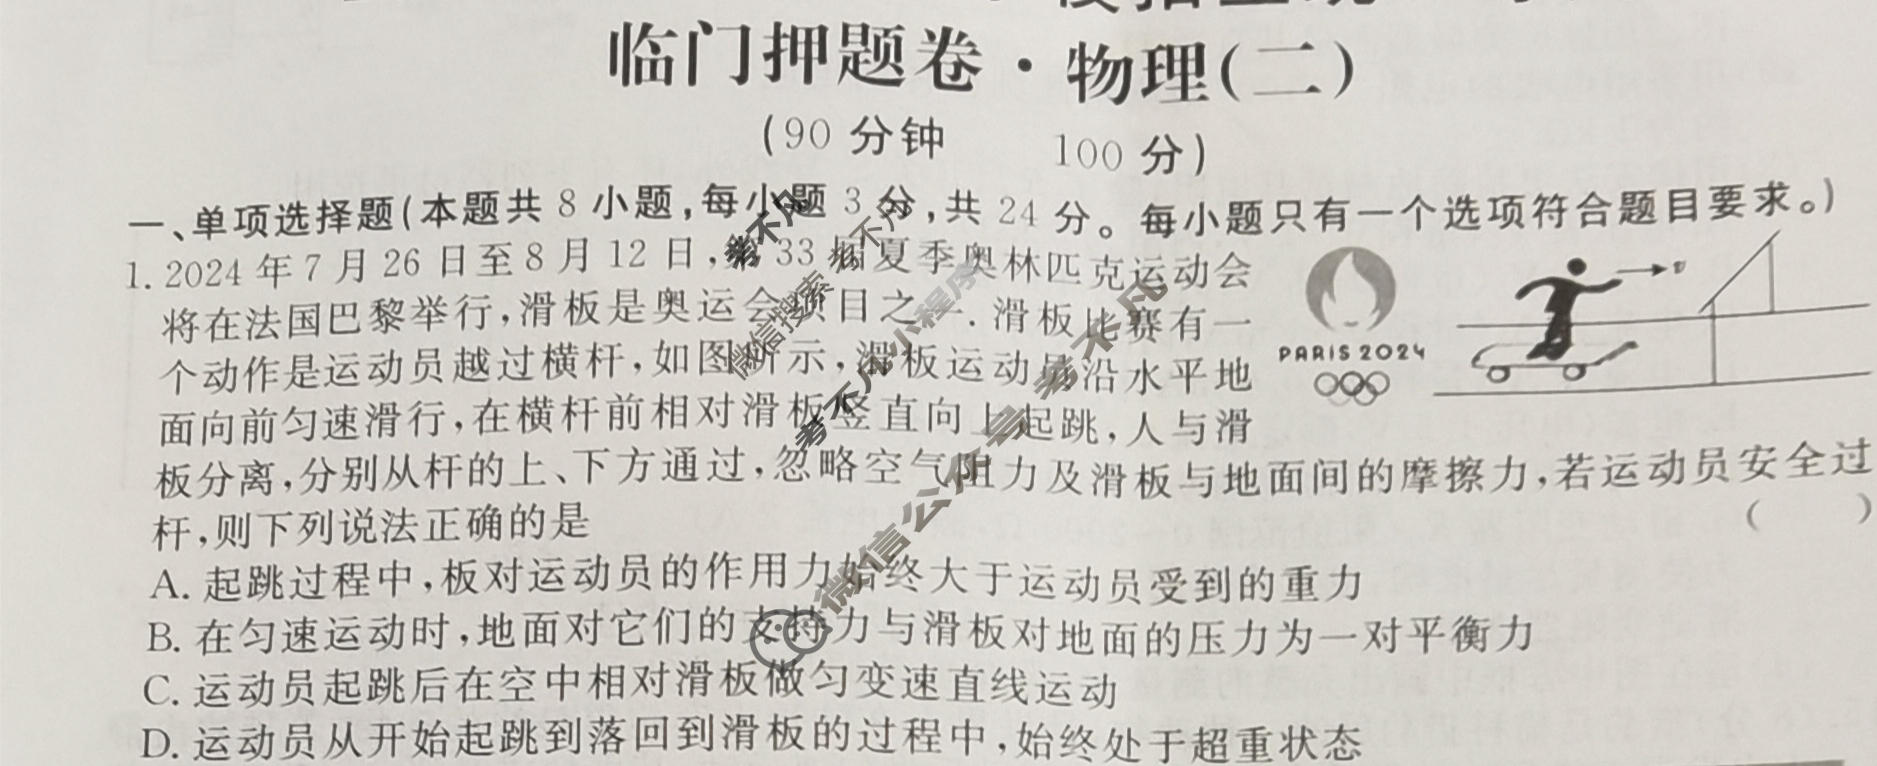 临门押题卷·物理(二)
(90分钟 100分)
一、单项选择题(本题共8小题,每小题3分,共24分。每小题只有一个选项符合题目要求。)
1. 2024年7月26日至8月12日,第33届夏季奥林匹克运动会
将在法国巴黎举行,滑板是奥运会项目之一.滑板比赛有一
个动作是运动员越过横杆,如图所示,滑板运动员沿水平地
面向前匀速滑行,在横杆前相对滑板竖直向上起跳,人与滑
板分离,分别从杆的上、下方通过,忽略空气阻力及滑板与地面间的摩擦力,若运动员安全过
杆,则下列说法正确的是 ( )
A. 起跳过程中,板对运动员的作用力始终大于运动员受到的重力
B. 在匀速运动时,地面对它们的支持力与滑板对地面的压力为一对平衡力
C. 运动员起跳后在空中相对滑板做匀变速直线运动
D. 运动员从开始起跳到落回到滑板的过程中,始终处于超重状态
v
PARIS 2024
考不凡
考不凡
微信搜索
小程序
考不凡
微信公众号
考不凡